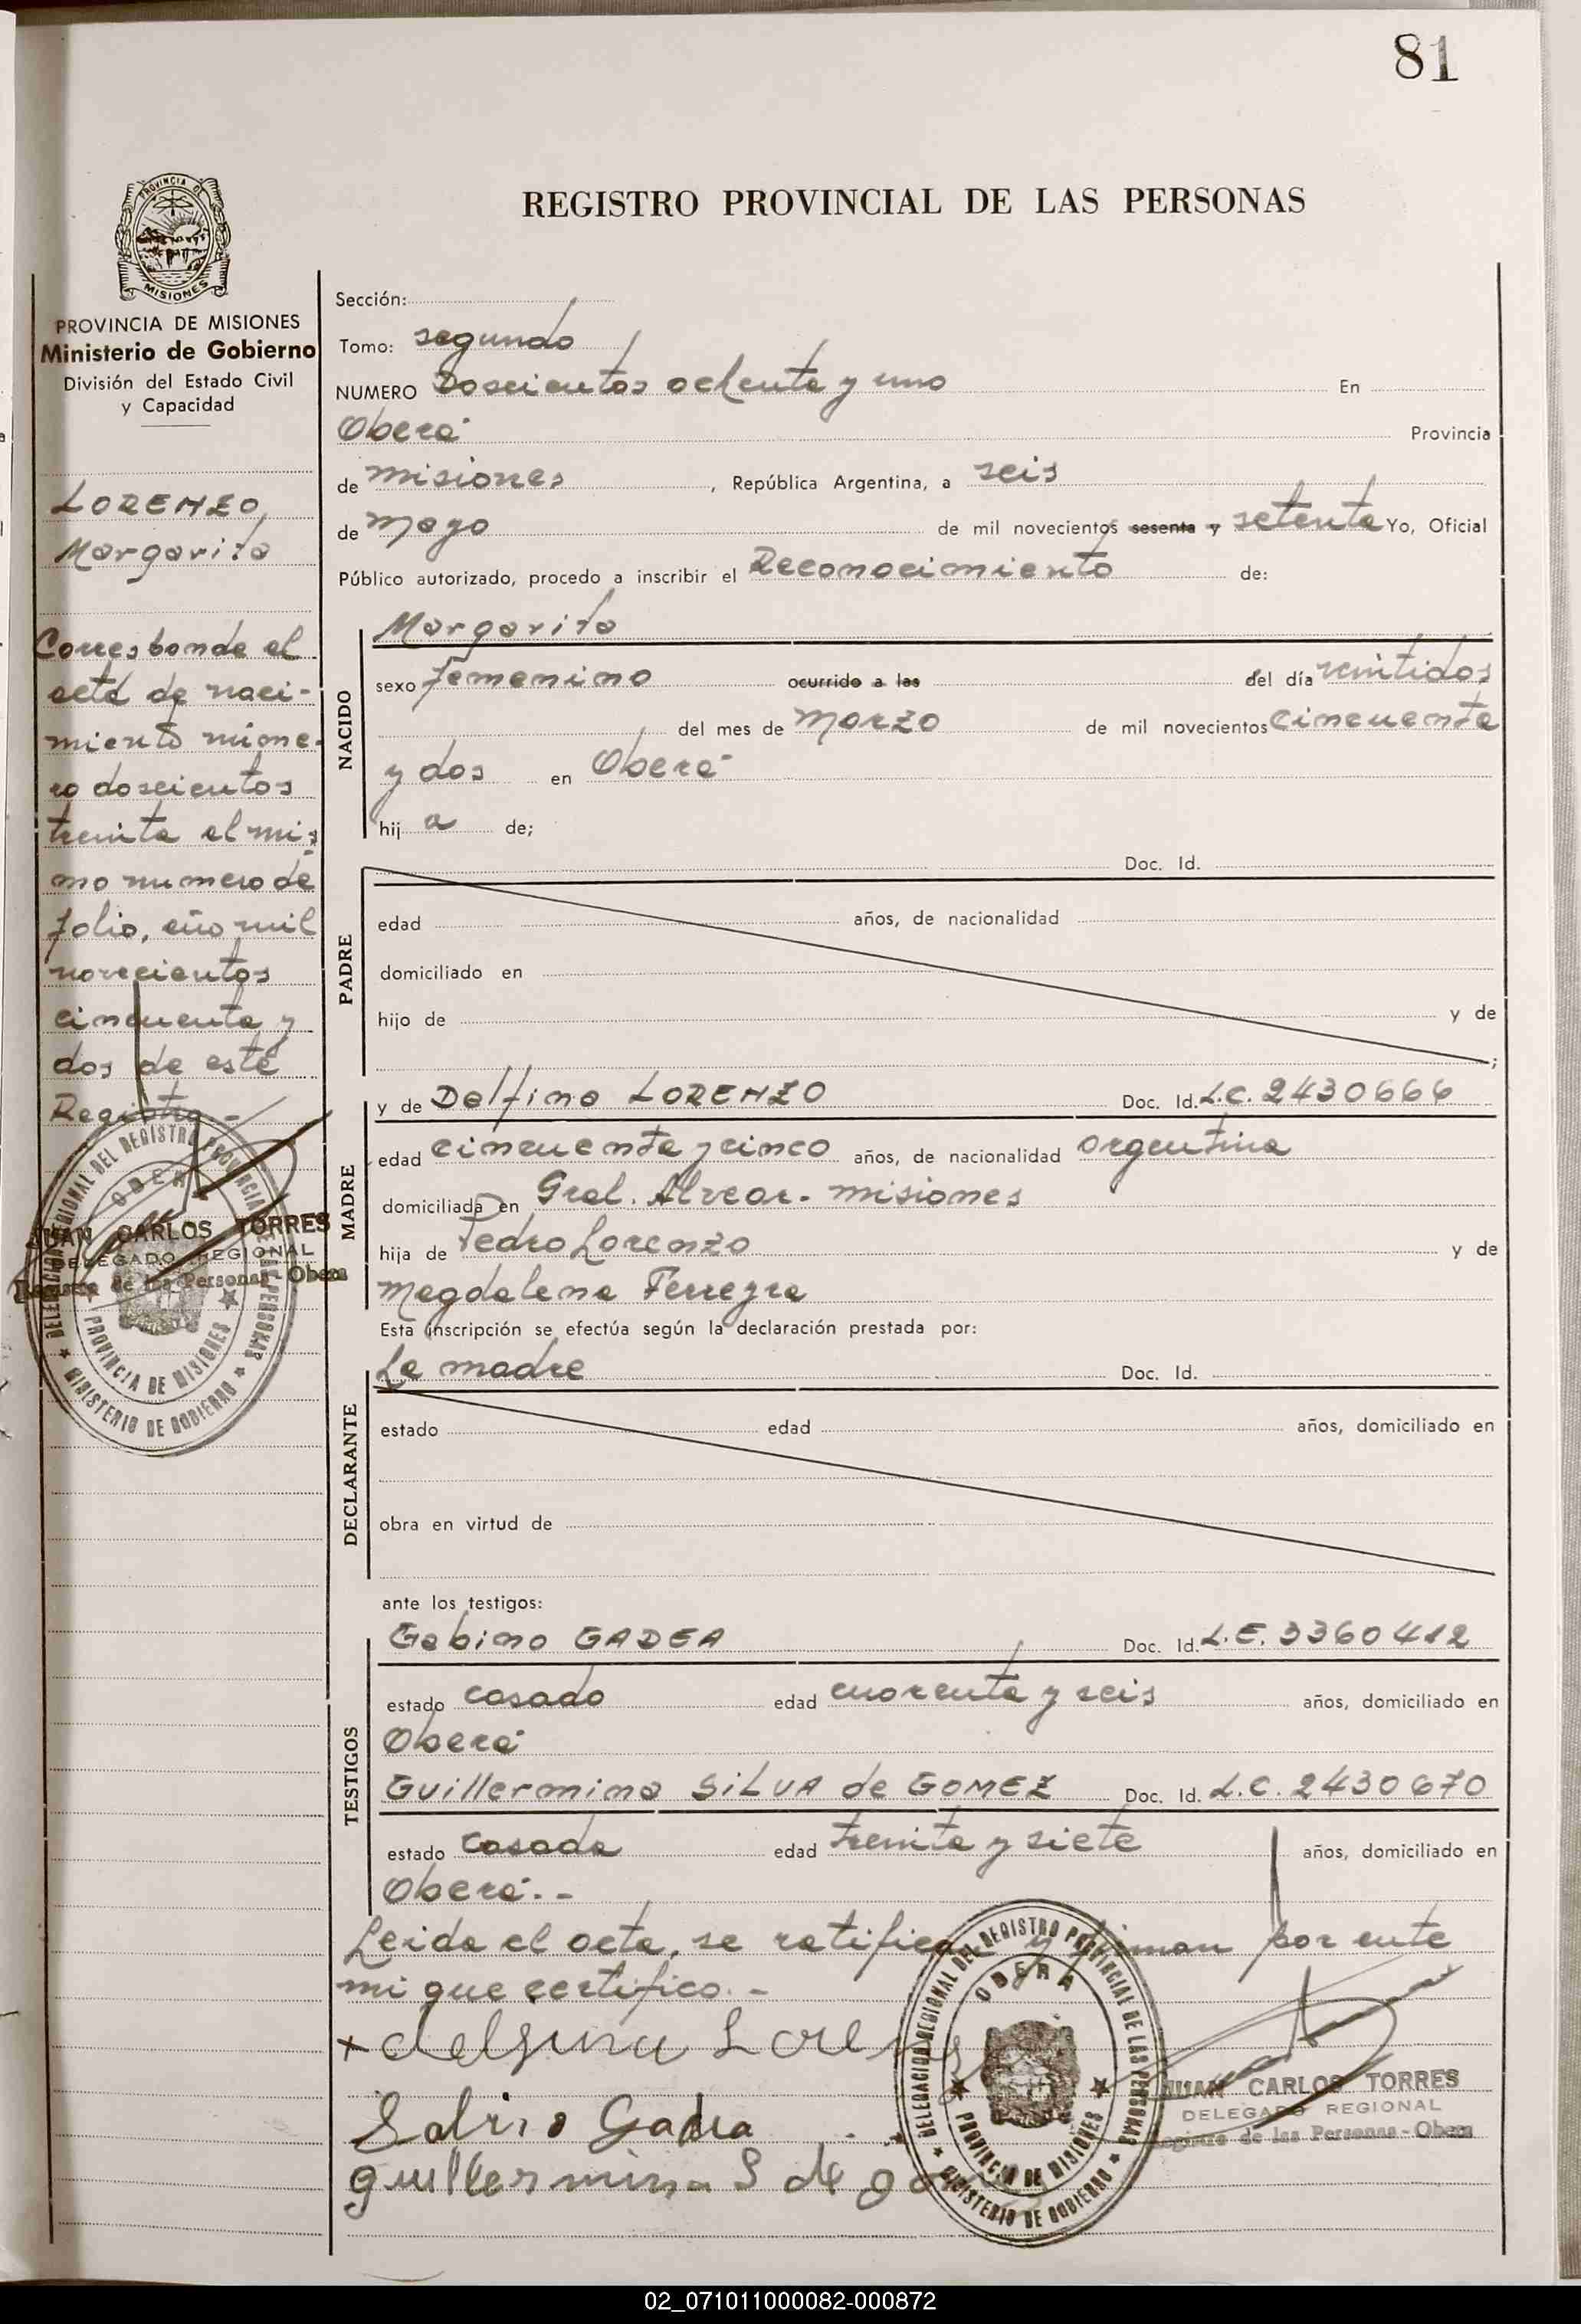 81
REGISTRO PROVINCIAL DE LAS PERSONAS
PROVINCIA DE MISIONES
PROVINCIA DE MISIONES
Ministerio de Gobierno
División del Estado Civil
y Capacidad
LORENZO,
Margarita
Corresponde el
acta de naci-
miento nume-
ro doscientos
treinta el mis
mo numero de
folio, año mil
novecientos
cincuenta y
dos de este
Registro.-
DELEGACION REGIONAL DEL REGISTRO PROVINCIAL DE LAS PERSONAS
OBERA
PROVINCIA DE MISIONES
MINISTERIO DE GOBIERNO
JUAN CARLOS TORRES
DELEGADO REGIONAL
Registro de las Personas - Obera
Sección:
Tomo: segundo
NUMERO Doscientos ochenta y uno En
Oberá Provincia
de misiones, República Argentina, a seis
de mayo de mil novecientos sesenta y setenta Yo, Oficial
Público autorizado, procedo a inscribir el Reconocimiento de:
NACIDO
Margarita
sexo femenino ocurrido a las del día veintidos
del mes de marzo de mil novecientos cincuenta
y dos en Oberá
hij a de;
PADRE
Doc. Id.
edad años, de nacionalidad
domiciliado en
hijo de y de
;
MADRE
y de Delfina LORENZO Doc. Id. L.C. 2430666
edad cincuenta y cinco años, de nacionalidad argentina
domiciliada en Gral. Alvear - misiones
hija de Pedro Lorenzo y de
Magdalena Ferreyra
Esta inscripción se efectúa según la declaración prestada por:
DECLARANTE
La madre Doc. Id.
estado edad años, domiciliado en
obra en virtud de
ante los testigos:
TESTIGOS
Gabino GADEA Doc. Id. L.E. 3360412
estado casado edad cuarenta y seis años, domiciliado en
Oberá
Guillermina SILVA de GOMEZ Doc. Id. L.C. 2430670
estado casada edad treinta y siete años, domiciliado en
Oberá.-
Leida el acta, se ratifican y firman por ante
mi que certifico.-
x delfina Lorenzo
Gabino Gadea
guillermina S de
DELEGACION REGIONAL DEL REGISTRO PROVINCIAL DE LAS PERSONAS
OBERA
PROVINCIA DE MISIONES
MINISTERIO DE GOBIERNO
JUAN CARLOS TORRES
DELEGADO REGIONAL
Registro de las Personas - Obera
02_071011000082-000872